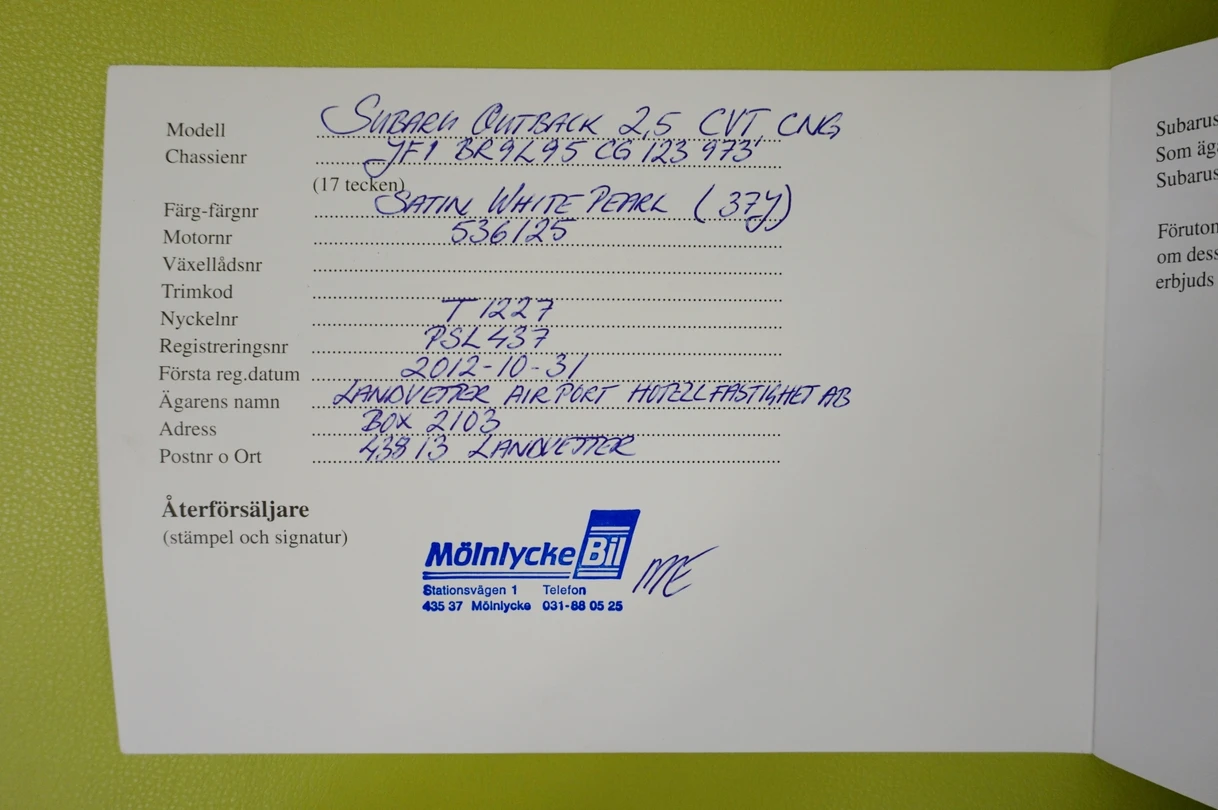 Modell SUBARU OUTBACK 2,5 CVT, CNG
Chassienr JF1 BR9L95 CG 123 973
(17 tecken)
Färg-färgnr SATIN WHITE PEARL (37J)
Motornr 536125
Växellådsnr
Trimkod
Nyckelnr T 1227
Registreringsnr PSL437
Första reg.datum 2012-10-31
Ägarens namn LANDVETTER AIRPORT HOTELL FASTIGHET AB
Adress BOX 2103
Postnr o Ort 438 13 LANDVETTER
Återförsäljare
(stämpel och signatur)
Mölnlycke Bil
Stationsvägen 1 Telefon
435 37 Mölnlycke 031-88 05 25
Subarus
Som äga
Subarus
Föruton
om dess
erbjuds